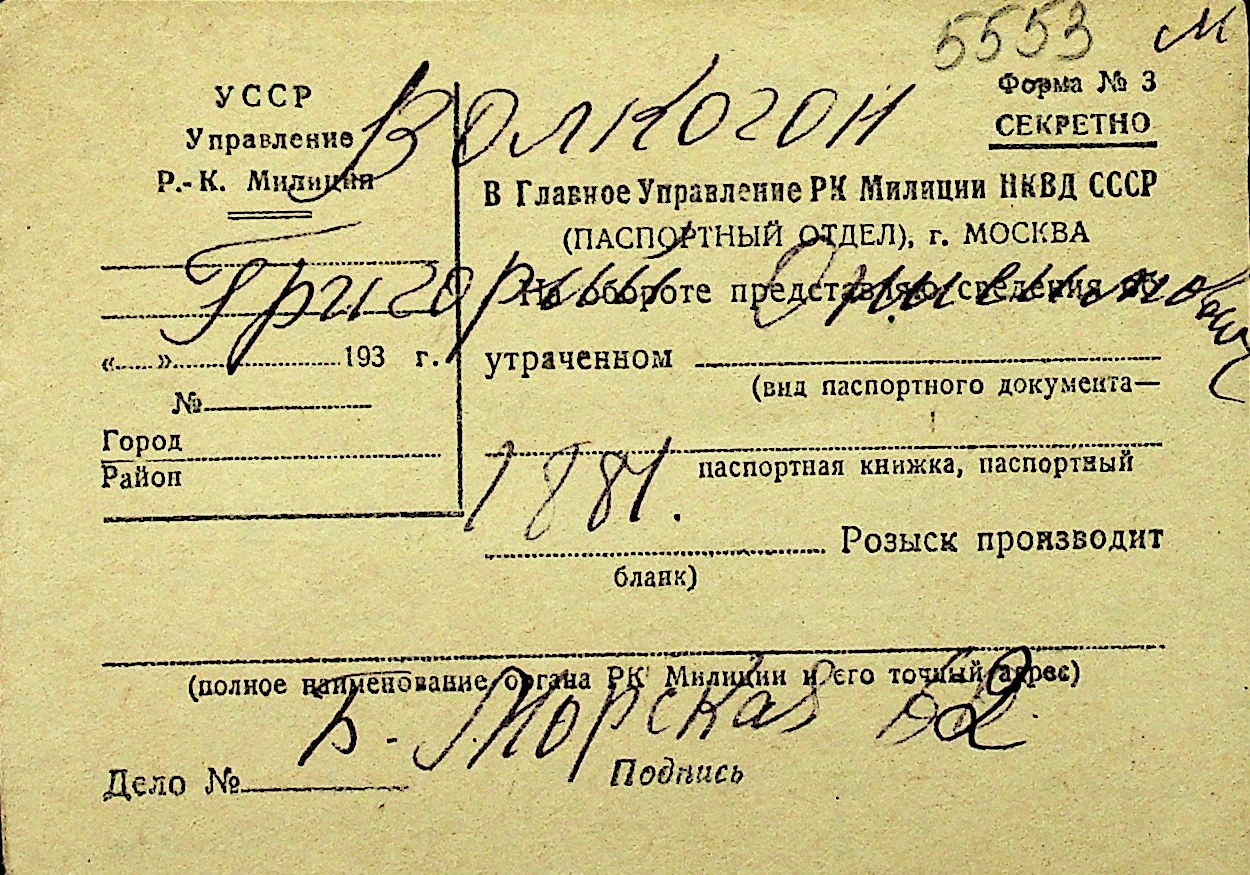 5553 м
УССР
Управление
Р.-К. Милиции
Волкогон
Форма № 3
СЕКРЕТНО
В Главное Управление РК Милиции НКВД СССР
(ПАСПОРТНЫЙ ОТДЕЛ), г. МОСКВА
Григорий
На обороте представляю сведения об
«.....»..................193 г.
утраченном
(вид паспортного документа—
№
Город
Район
паспортная книжка, паспортный
1881.
Розыск производит
бланк)
(полное наименование органа РК Милиции и его точный адрес)
Б. Морская 62
Дело №
Подпись